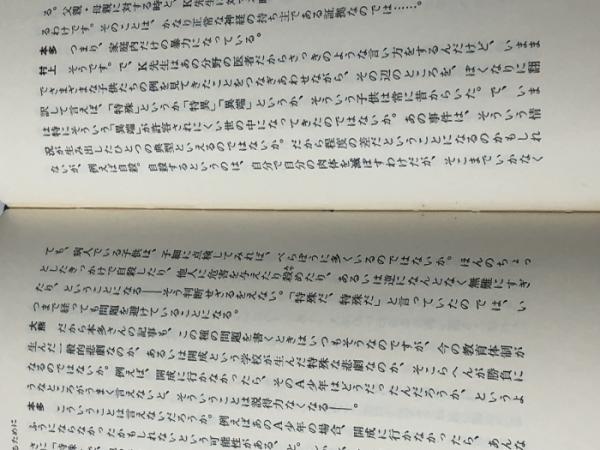 る。父親・母親に対する時と、K先生に対
るわけです。そのことは、かなり正常な神経の持ち主である証拠なのでは……。
本多　つまり、家庭内だけの暴力になっている。
村上　そうです。で、K先生はあの分野の医者だからさっきのような言い方をするんだけど、いまま
でさまざまな子供たちの例を見てきたことをつなぎあわせながら、その辺のところを、ぼくなりに翻
訳して言えば、「特殊」というか「特異」「異端」というか、そういう子供は常に昔からいた。で、いま
は特にそういう「異端」が許容されにくい世の中になってきたのではないか。あの事件は、そういう情
況が生み出したひとつの典型といえるのではないか。だから程度の差だということになるのかもしれ
ないが、例えば自殺。自殺するというのは、自分で自分の肉体を滅ぼすわけだが、そこまでいかなく
ても、病人でいる子供は、子細に点検してみれば、べらぼうに多くいるのではないか。ほんのちょっ
としたきっかけで自殺したり、他人に危害を与えたり殺めたり、あるいは逆になんとなく無難にすぎ
たり、ということになる――そう判断せざるをえない。「特殊だ、特殊だ」と言っていたのでは、い
つまで経っても問題を避けていることになる。
大熊　だから本多さんの記事も、この種の問題を書くときはいつもそうなのですが、今の教育体制が
生んだ一般的悲劇なのか、あるいは開成という学校が生んだ特殊な悲劇なのか、そこらへんが勝負に
なるのではないか。例えば、開成に行かなかったら、そのA少年はどうだったんだろうか、というよ
うなところがうまく言えないと、そういうことは説得力なくなる――。
本多　こういうことは言えないだろうか。例えばあのA少年の場合、開成に行かなかったら、あんな
ふうにならなかったかもしれないという可能性がある、と。
さに「特殊
るために